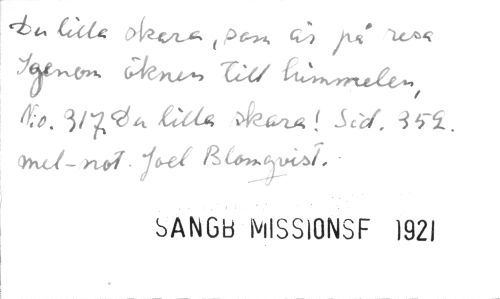 Du lilla skara, som är på resa
Igenom öknen till himmelen,
No. 317, Du lilla skara! Sid. 352.
mel-not. Joel Blomqvist.
SANGB MISSIONSF 1921